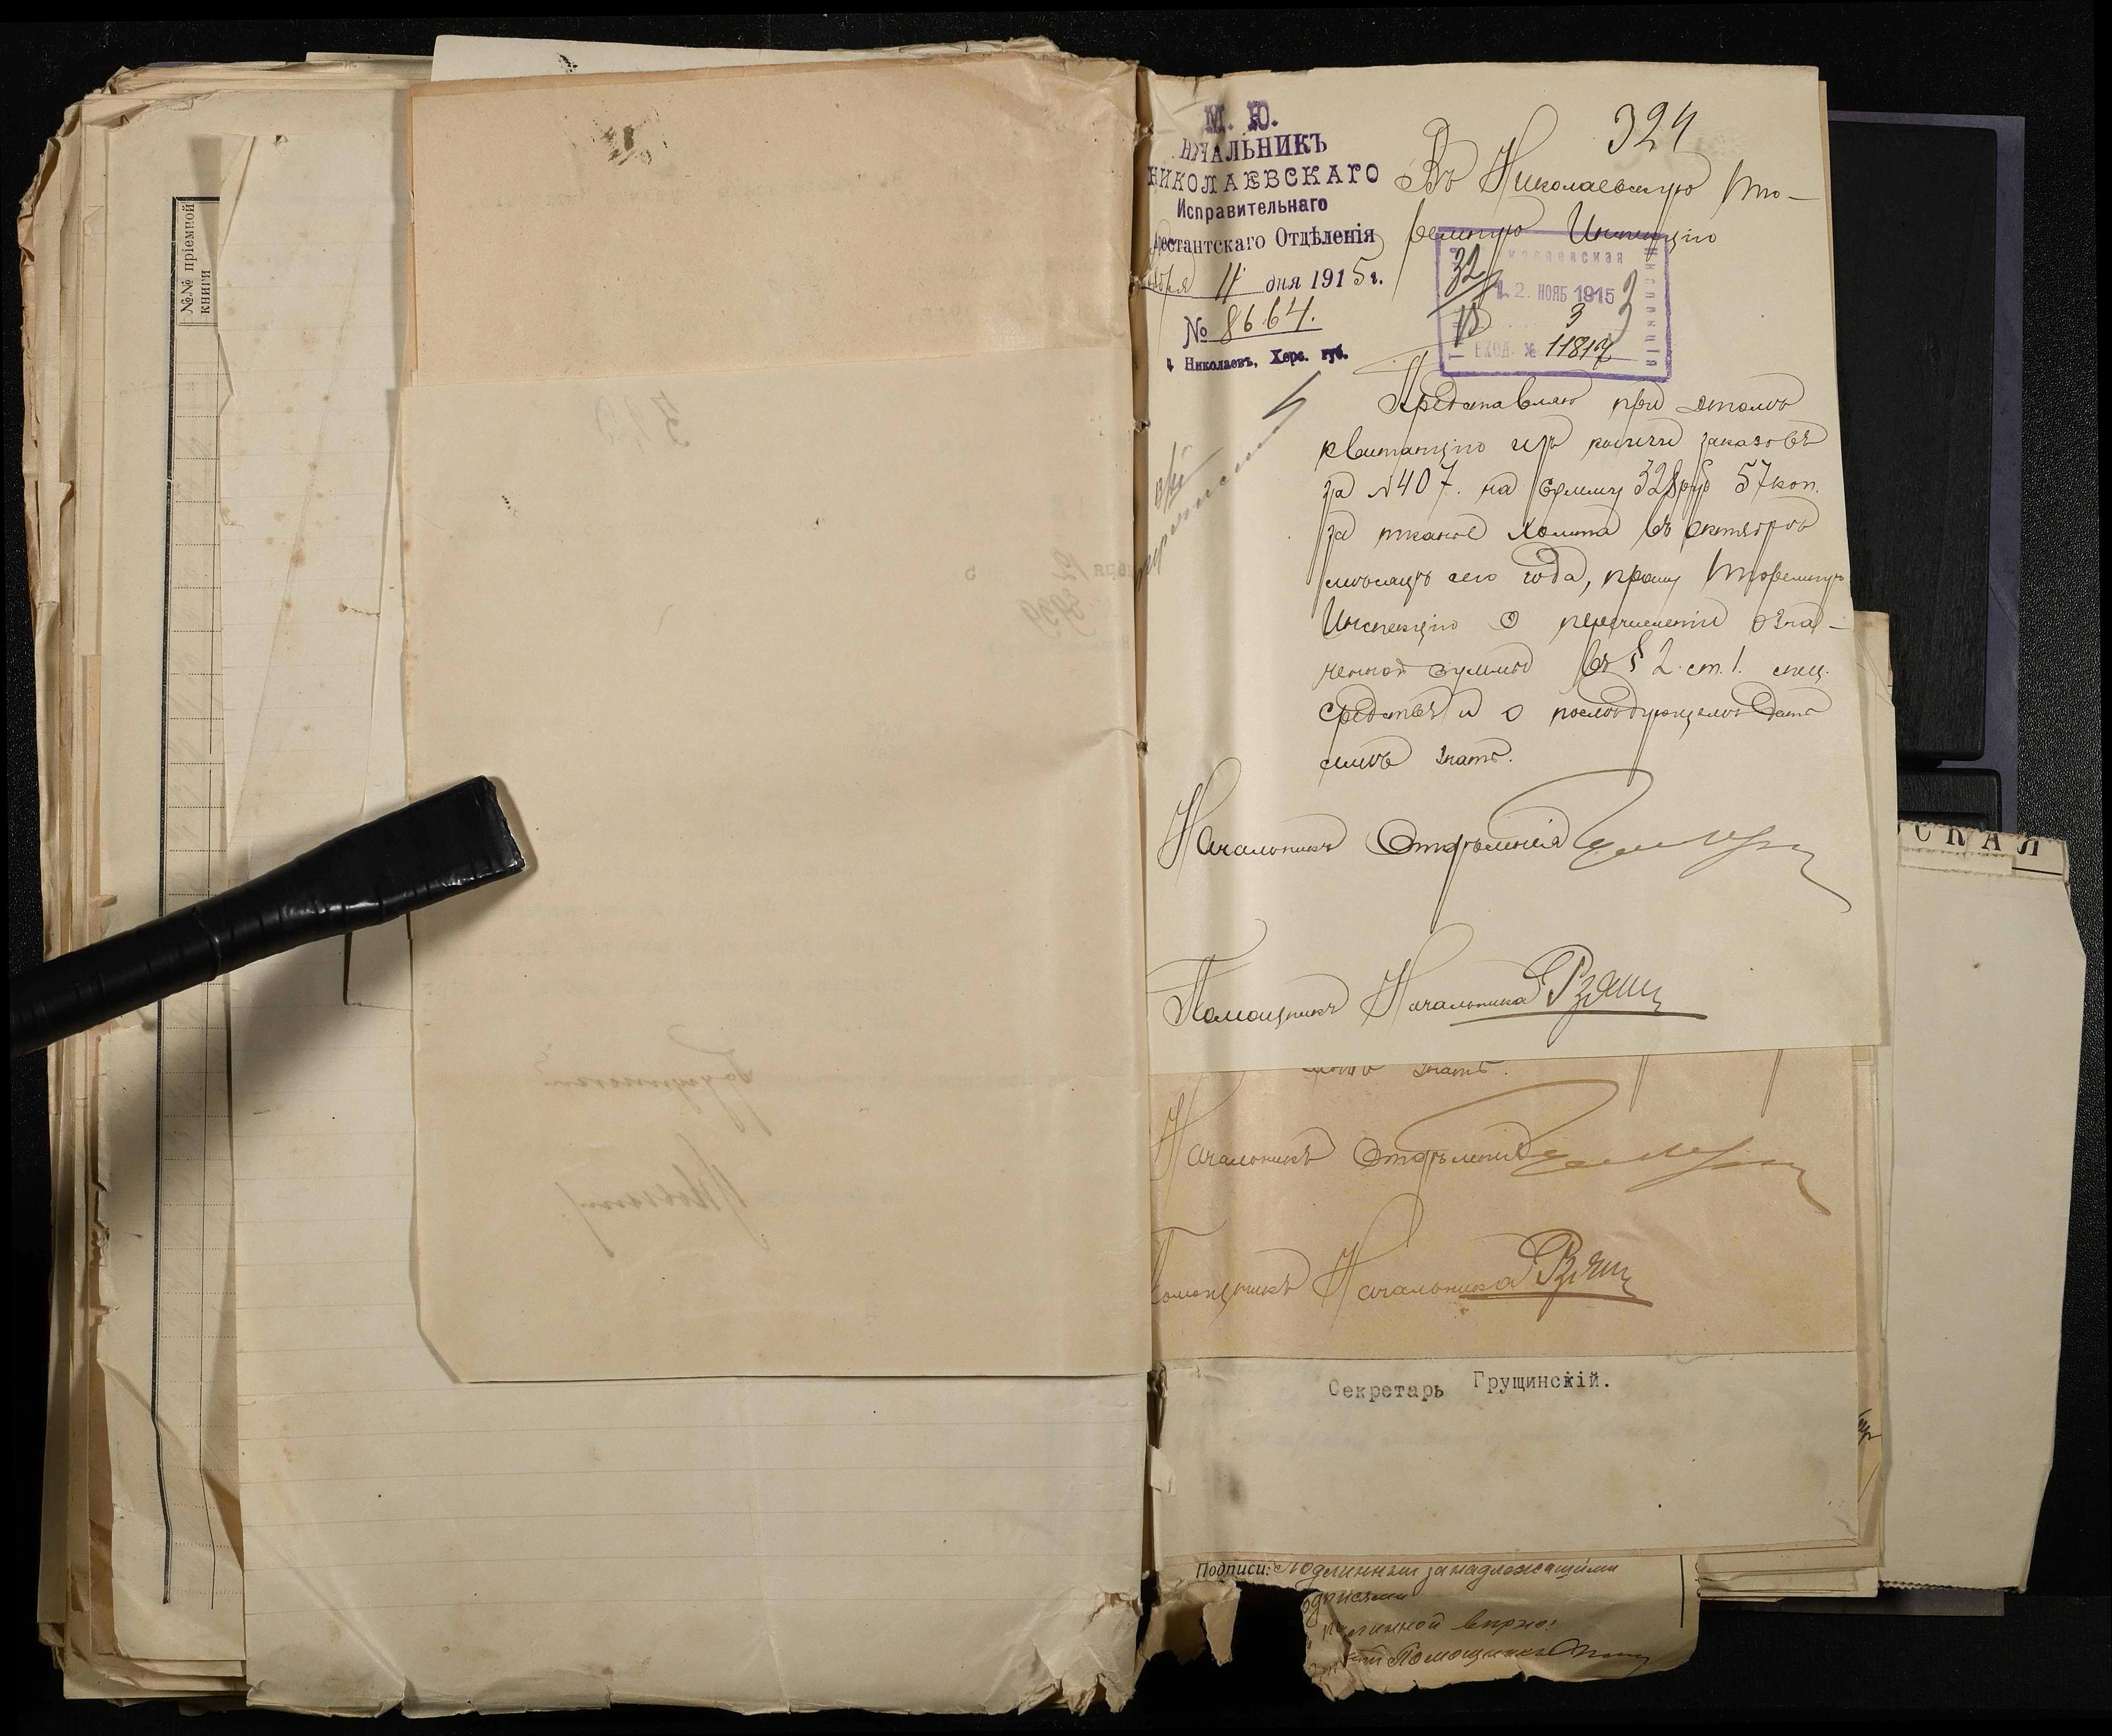 №№ пріемной
книги
324
М. Ю.
НАЧАЛЬНИКЪ
НИКОЛАЕВСКАГО
Исправительнаго
Арестантскаго Отдѣленія
ноября 11 дня 1915 г.
№ 8664.
г. Николаевъ, Херс. губ.
Въ Николаевскую Тю-
ремную Инспекцію
2. НОЯБ 1915
ВХОД. №
Инспекція
Представляя при этомъ
квитанцію изъ книги заказовъ
за №407. на сумму 328руб 57коп.
за тканьё холста въ октябрѣ
мѣсяцѣ сего года, прошу Тюремную
Инспекцію о перечисленіи озна-
ченной суммы въ § 2 ст. 1. спец.
средствъ и о послѣдующемъ дать
мнѣ знать.
Начальникъ Отдѣленія
Помощникъ Начальника
знать.
Начальникъ Отдѣленія
Помощникъ Начальника
Секретарь Грущинскій.
СКАЯ
Подписи: Подлинный за надлежащими
подписями
линной вѣрно:
Помощникъ